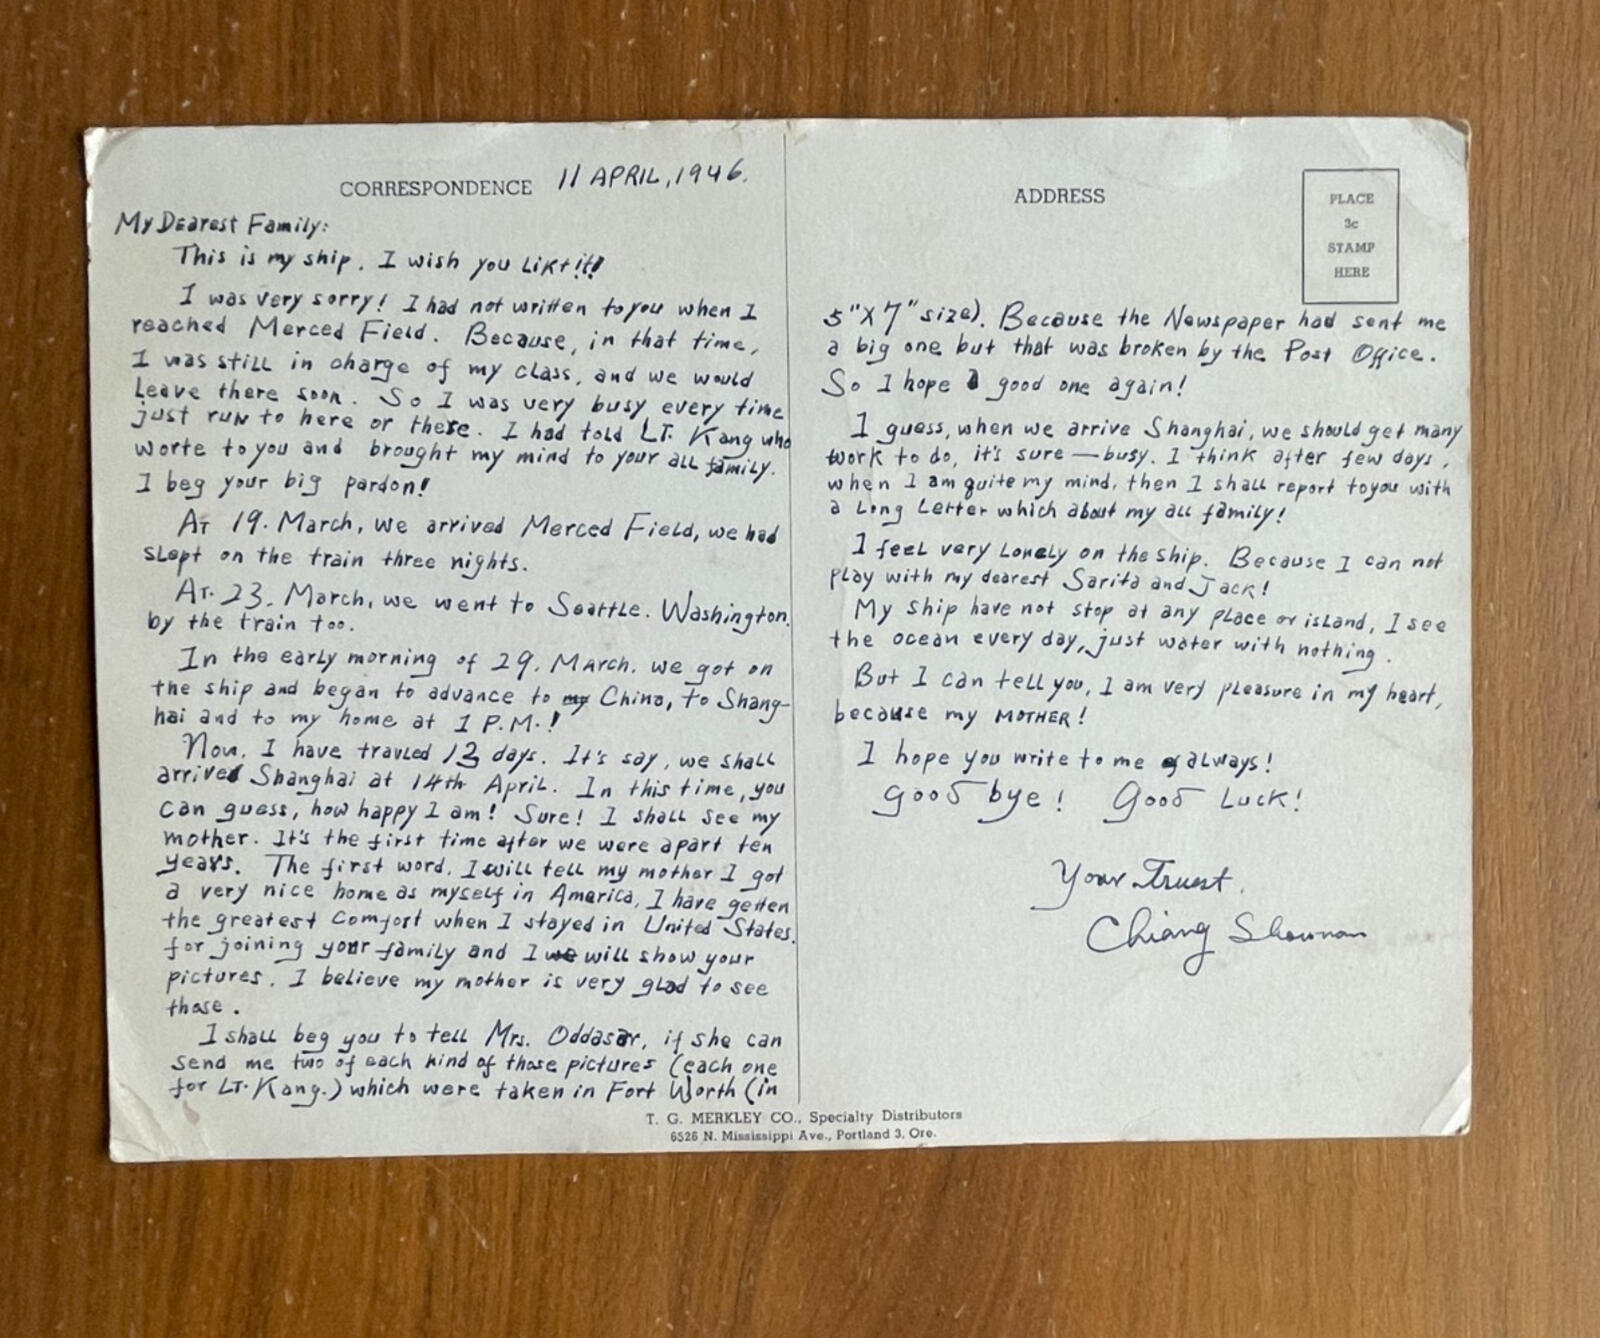 CORRESPONDENCE 11 APRIL, 1946.
My Dearest Family:
This is my ship. I wish you like it!!
I was very sorry! I had not written to you when I
reached Merced Field. Because, in that time,
I was still in charge of my class, and we would
Leave there soon. So I was very busy every time
just run to here or there. I had told LT. Kang who
worte to you and brought my mind to your all family.
I beg your big pardon!
At 19. March, we arrived Merced Field, we had
slept on the train three nights.
At. 23. March, we went to Seattle. Washington.
by the train too.
In the early morning of 29. March. we got on
the ship and began to advance to my China, to Shang-
hai and to my home at 1 P.M.!
Now, I have travled 13 days. It's say, we shall
arrive Shanghai at 14th April. In this time, you
can guess, how happy I am! Sure! I shall see my
mother. It's the first time after we were apart ten
years. The first word, I will tell my mother I got
a very nice home as myself in America, I have getten
the greatest comfort when I stayed in United States.
for joining your family and I we will show your
pictures. I believe my mother is very glad to see
those.
I shall beg you to tell Mrs. Oddasar, if she can
send me two of each kind of those pictures (each one
for LT. Kang.) which were taken in Fort Worth (in
ADDRESS
PLACE
3c
STAMP
HERE
5"X7" size). Because the Newspaper had sent me
a big one but that was broken by the Post Office.
So I hope a good one again!
I guess, when we arrive Shanghai, we should get many
work to do, it's sure — busy. I think after few days,
when I am quite my mind, then I shall report to you with
a Long Letter which about my all family!
I feel very Lonely on the ship. Because I can not
play with my dearest Sarita and Jack!
My ship have not stop at any place or island, I see
the ocean every day, just water with nothing.
But I can tell you, I am very pleasure in my heart,
because my MOTHER!
I hope you write to me always!
Good bye! Good Luck!
Your Truest.
Chiang Shownan
T. G. MERKLEY CO., Specialty Distributors
6526 N. Mississippi Ave., Portland 3, Ore.